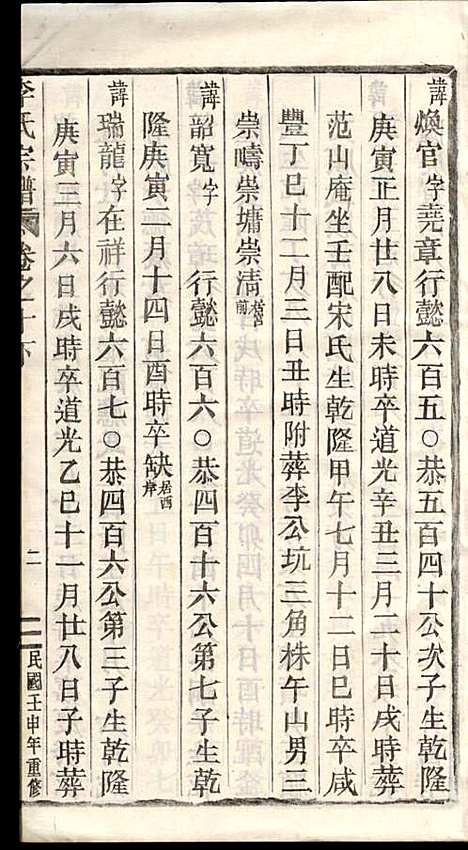 諱煥官字堯章行懿六百五○恭五百四十公次子生乾隆
庚寅正月廿八日未時卒道光辛丑三月二十日戌時葬
范山庵坐壬配宋氏生乾隆甲午七月十二日巳時卒咸
豐丁巳十二月三日丑時附葬李公坑三角株午山男三
崇疇崇墉崇清
諱韶寬字　行懿六百六○恭四百十六公第七子生乾
隆庚寅二月十四日酉時卒缺居西岸
諱瑞龍字在祥行懿六百七○恭四百六公第三子生乾隆
庚寅三月六日戌時卒道光乙巳十一月廿八日子時葬
李氏宗譜　卷之十下　二　民國壬申年重修